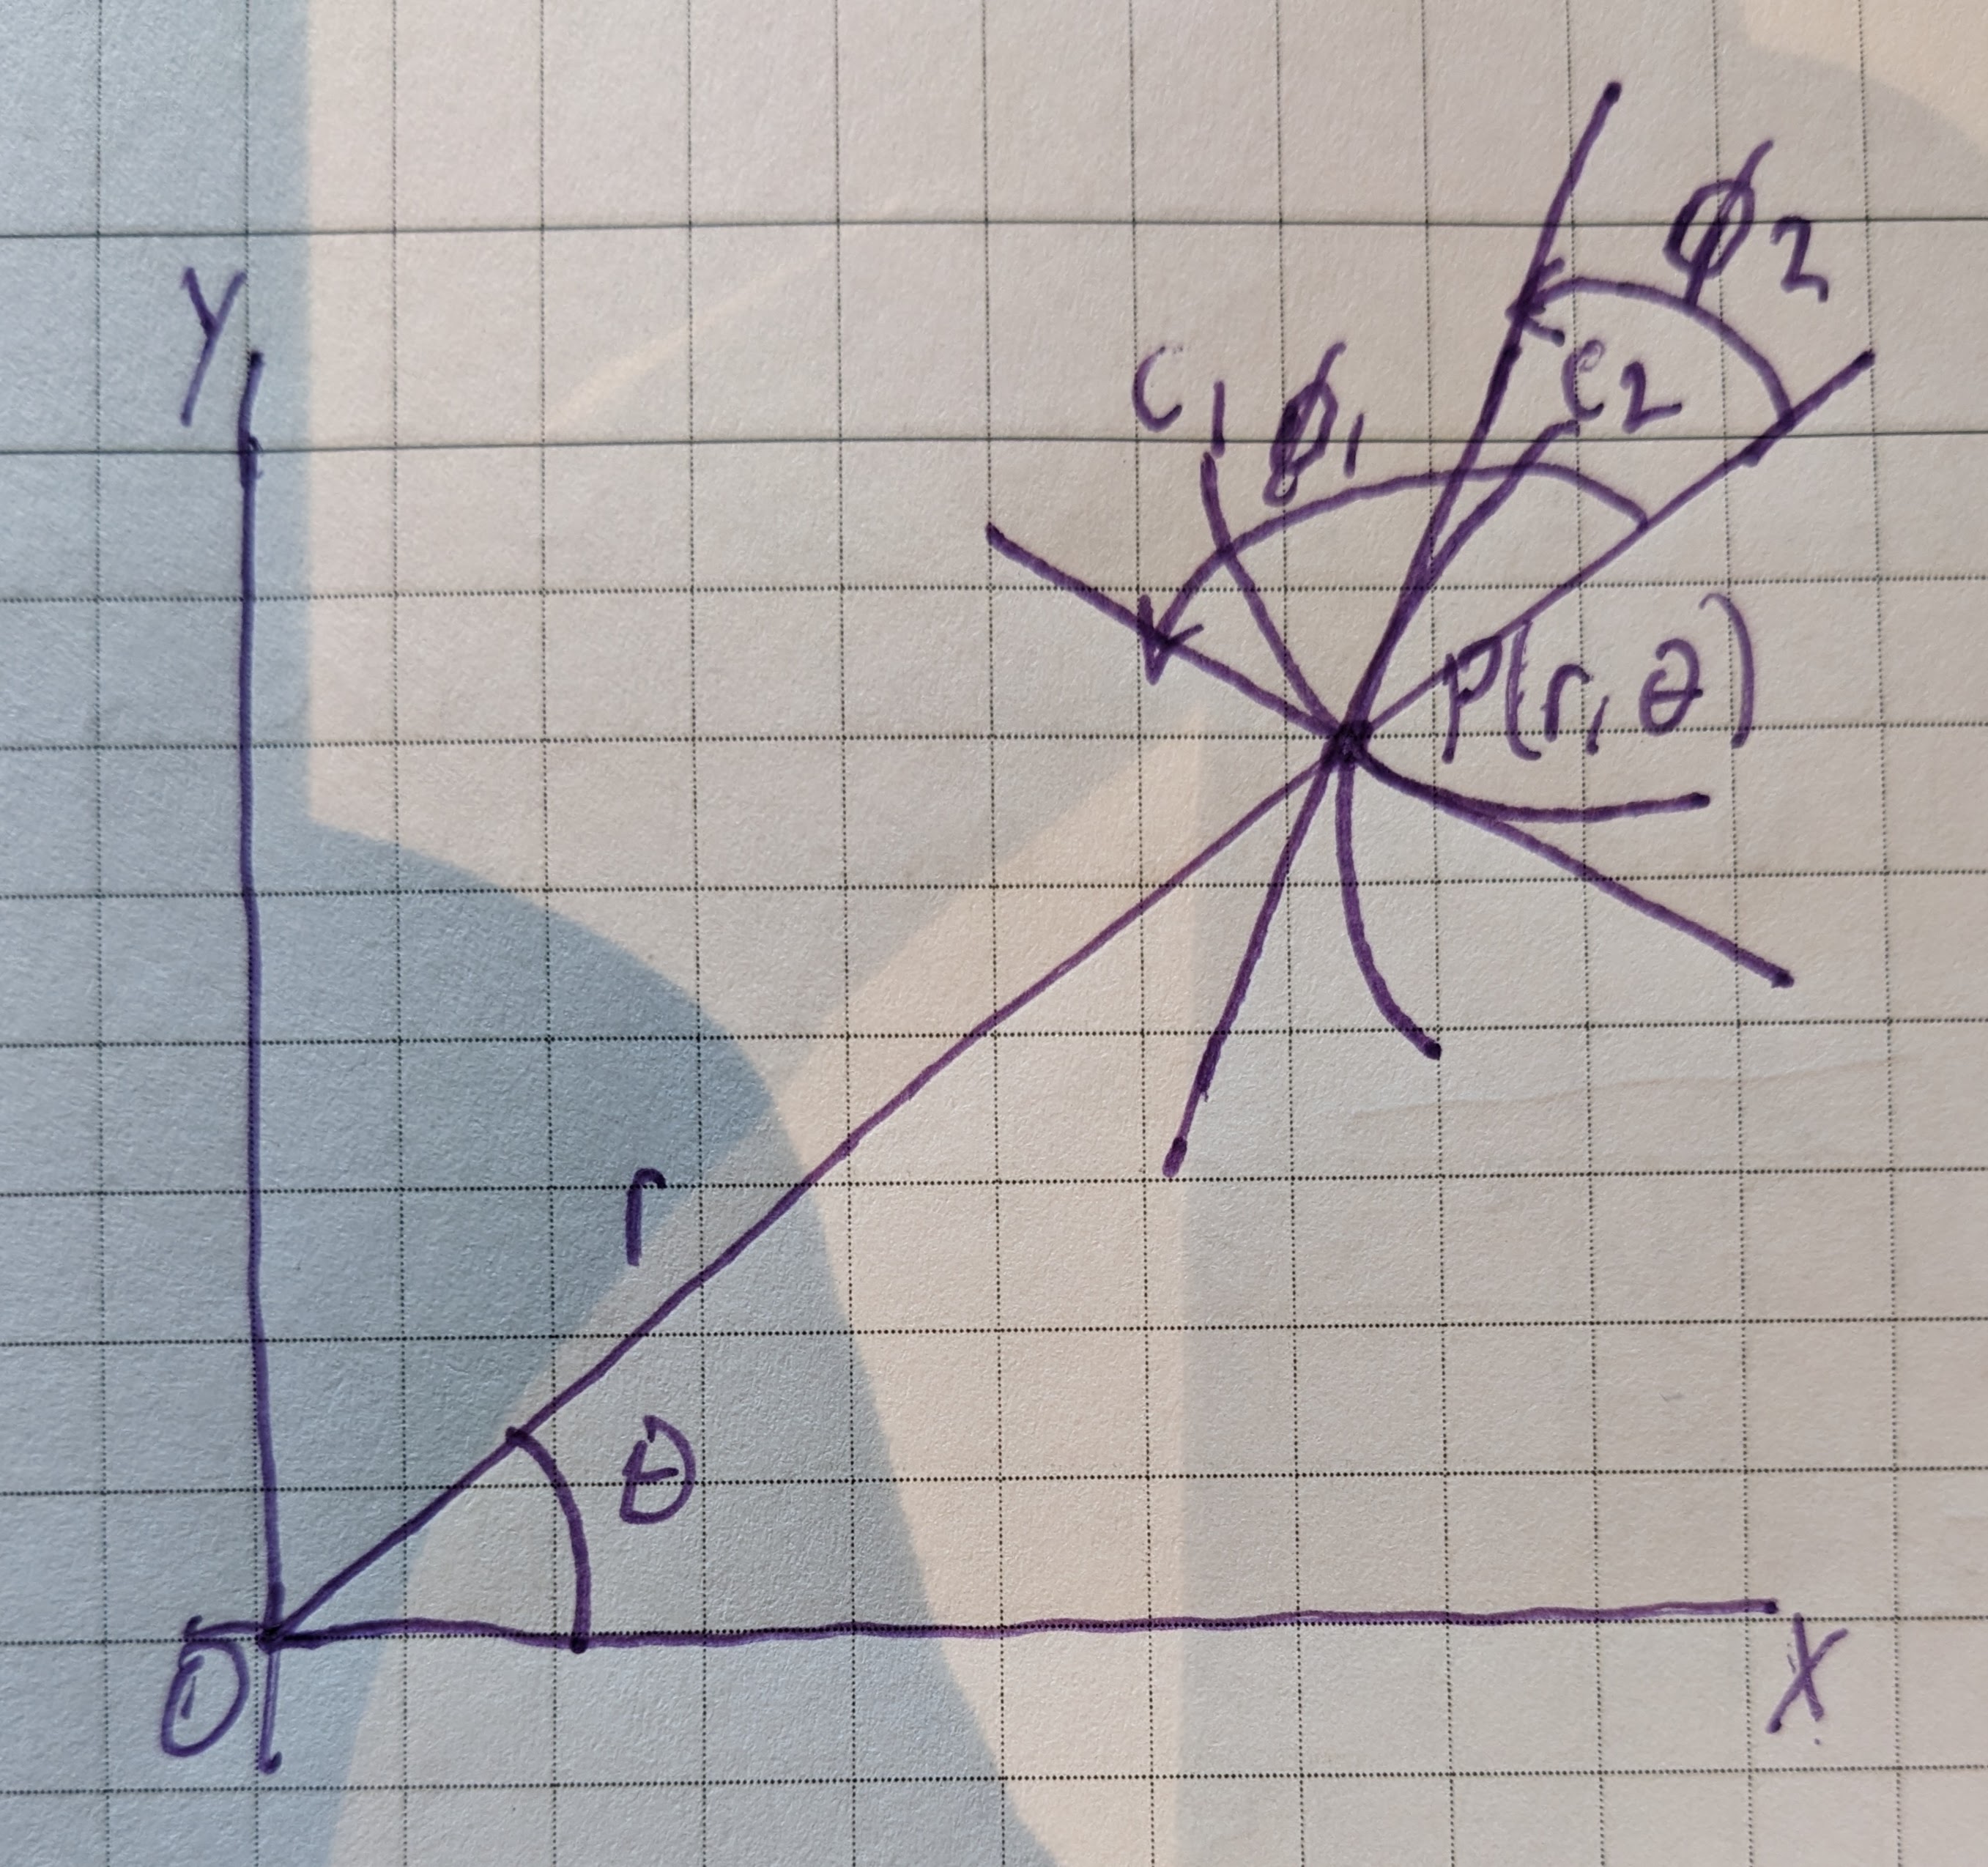 Y
ϕ2
C1
ϕ1
C2
P(r, θ)
r
θ
O
X